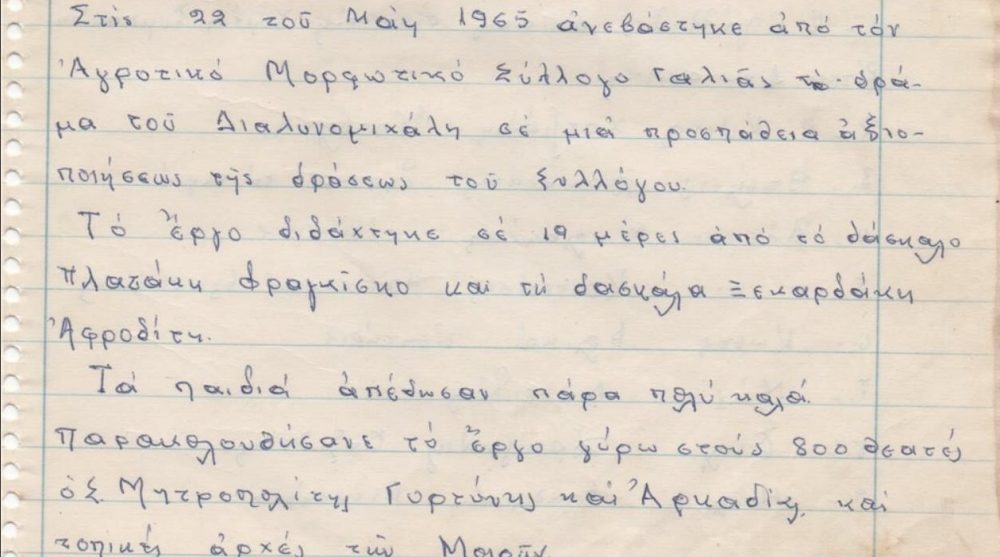 Στίς 22 τοῦ Μάη 1965 ἀνεβάστηκε ἀπό τόν
Ἀγροτικό Μορφωτικό Σύλλογο Γαλιᾶς τό δρά-
μα τοῦ Διαλυνομιχάλη σέ μιά προσπάθεια ἀξιο-
ποιήσεως τῆς δράσεως τοῦ ξυλλόγου.
Τό ἔργο διδάχτηκε σέ 19 μέρες ἀπό τό δάσκαλο
Πλατάκη Φραγκίσκο καί τή δασκάλα Ξεκαρδάκη
Ἀφροδίτη.
Τά παιδιά ἀπέδωσαν πάρα πολύ καλά.
Παρακολουθήσανε τό ἔργο γύρω στούς 800 θεατές
ὁ Μητροπολίτης Γορτύνης καί Ἀρκαδίας καί
τοπικές ἀρχές τῶν Μοιρῶν.